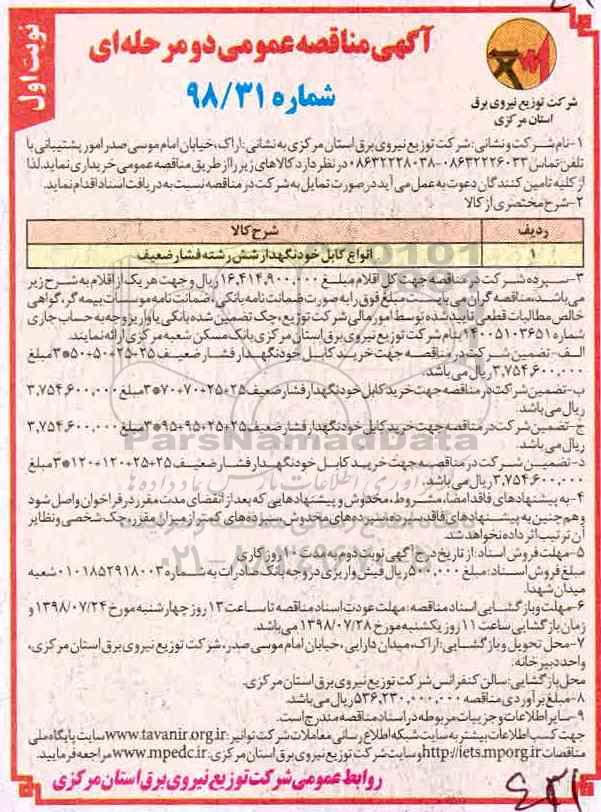 نوبت اول
آگهی مناقصه عمومی دو مرحله ای
شماره ۹۸/۳۱
شرکت توزیع نیروی برق
استان مرکزی
۱-نام شرکت و نشانی: شرکت توزیع نیروی برق استان مرکزی به نشانی: اراک، خیابان امام موسی صدر امور پشتیبانی با
تلفن تماس ۰۸۶۳۲۲۲۶۰۳۳-۰۸۶۳۲۲۲۸۰۳۸ در نظر دارد کالاهای زیر را از طریق مناقصه عمومی خریداری نماید. لذا
از کلیه تامین کنندگان دعوت به عمل می آید در صورت تمایل به شرکت در مناقصه نسبت به دریافت اسناد اقدام نماید.
۲-شرح مختصری از کالا
ردیف شرح کالا
۱ انواع کابل خودنگهدار شش رشته فشار ضعیف
۳-سپرده شرکت در مناقصه جهت کل اقلام مبلغ ۱۶,۴۱۴,۹۰۰,۰۰۰ ریال و جهت هر یک از اقلام به شرح زیر
می باشد، مناقصه گران می بایست مبلغ فوق را به صورت ضمانت نامه بانکی، ضمانت نامه موسسات بیمه گر، گواهی
خالص مطالبات قطعی تایید شده توسط امور مالی شرکت توزیع، چک تضمین شده بانکی یا واریز وجه به حساب جاری
شماره ۱۴۰۰۵۱۰۳۶۵۱ بنام شرکت توزیع نیروی برق استان مرکزی بانک مسکن شعبه مرکزی ارائه نمایند.
الف-تضمین شرکت در مناقصه جهت خرید کابل خودنگهدار فشار ضعیف ۲۵+۲۵+۵۰+۵۰*۳ مبلغ
۳,۷۵۴,۶۰۰,۰۰۰ ریال می باشد.
ب-تضمین شرکت در مناقصه جهت خرید کابل خودنگهدار فشار ضعیف ۲۵+۲۵+۷۰+۷۰*۳ مبلغ ۳,۷۵۴,۶۰۰,۰۰۰
ریال می باشد.
ج-تضمین شرکت در مناقصه جهت خرید کابل خودنگهدار فشار ضعیف ۲۵+۲۵+۹۵+۹۵*۳ مبلغ ۳,۷۵۴,۶۰۰,۰۰۰
ریال می باشد.
د-تضمین شرکت در مناقصه جهت خرید کابل خودنگهدار فشار ضعیف ۲۵+۲۵+۱۲۰+۱۲۰*۳ مبلغ
۳,۷۵۴,۶۰۰,۰۰۰ ریال می باشد.
۴-به پیشنهادهای فاقد امضا، مشروط، مخدوش و پیشنهادهایی که بعد از انقضای مدت مقرر در فراخوان واصل شود
و هم چنین به پیشنهادهای فاقد سپرده، سپرده های مخدوش، سپرده های کمتر از میزان مقرر، چک شخصی و نظایر
آن ترتیب اثر داده نخواهد شد.
۵-مهلت فروش اسناد: از تاریخ درج آگهی نوبت دوم به مدت ۱۰ روز کاری
مبلغ فروش اسناد: مبلغ ۵۰۰,۰۰۰ ریال فیش واریزی در وجه بانک صادرات به شماره ۰۱۰۱۸۵۲۹۱۸۰۰۳ شعبه
میدان شهدا.
۶-مهلت و بازگشایی اسناد مناقصه: مهلت عودت اسناد مناقصه تا ساعت ۱۳ روز چهارشنبه مورخ ۱۳۹۸/۰۷/۲۴ و
زمان بازگشایی ساعت ۱۱ روز یکشنبه مورخ ۱۳۹۸/۰۷/۲۸ می باشد.
۷-محل تحویل و بازگشایی: اراک، میدان دارایی، خیابان امام موسی صدر، شرکت توزیع نیروی برق استان مرکزی،
واحد دبیرخانه.
محل بازگشایی: سالن کنفرانس شرکت توزیع نیروی برق استان مرکزی.
۸-مبلغ برآوردی مناقصه ۵۳۶,۲۳۰,۰۰۰,۰۰۰ ریال می باشد.
۹-سایر اطلاعات و جزییات مربوطه در اسناد مناقصه مندرج است.
جهت کسب اطلاعات بیشتر به سایت شبکه اطلاع رسانی معاملات شرکت توانیر: www.tavanir.org.ir سایت پایگاه ملی
مناقصات http://iets.mporg.ir و سایت شرکت توزیع نیروی برق استان مرکزی: www.mpedc.ir مراجعه فرمایید.
روابط عمومی شرکت توزیع نیروی برق استان مرکزی
ParsNamadData